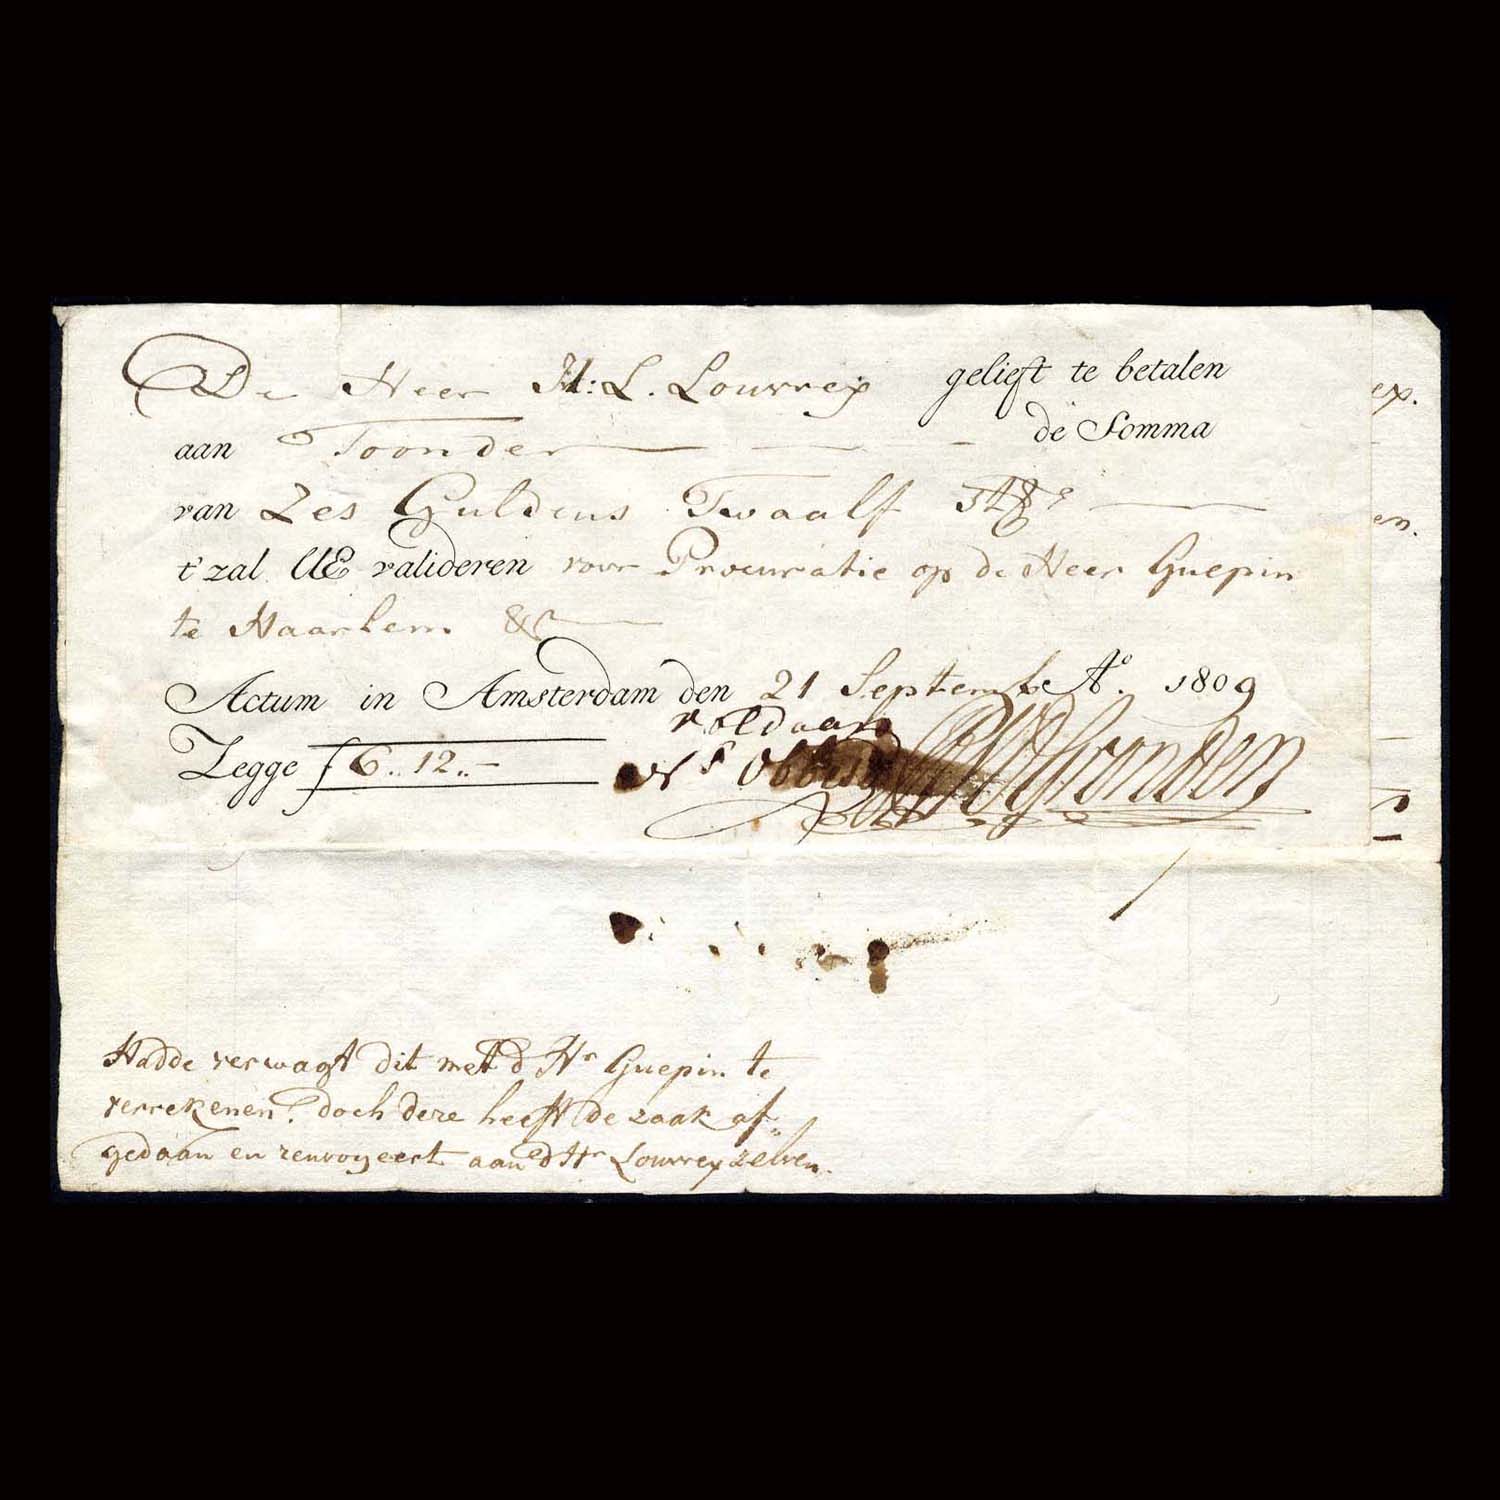 De Heer H: L. Louvrex gelieft te betalen
aan Toonder de Somma
van Zes Guldens Twaalf St.s
t' zal UE valideren voor Procuratie op de Heer Guepin
te Haarlem &c
Actum in Amsterdam den 21 September Ao. 1809
voldaan
Zegge ƒ 6..12..-
Hadde verwagt dit met d Hr Guepin te
verrekenen. doch deze heeft de zaak af„
gedaan en renvoyeert aan d Hr Louvrex zelven.
ex.
en.